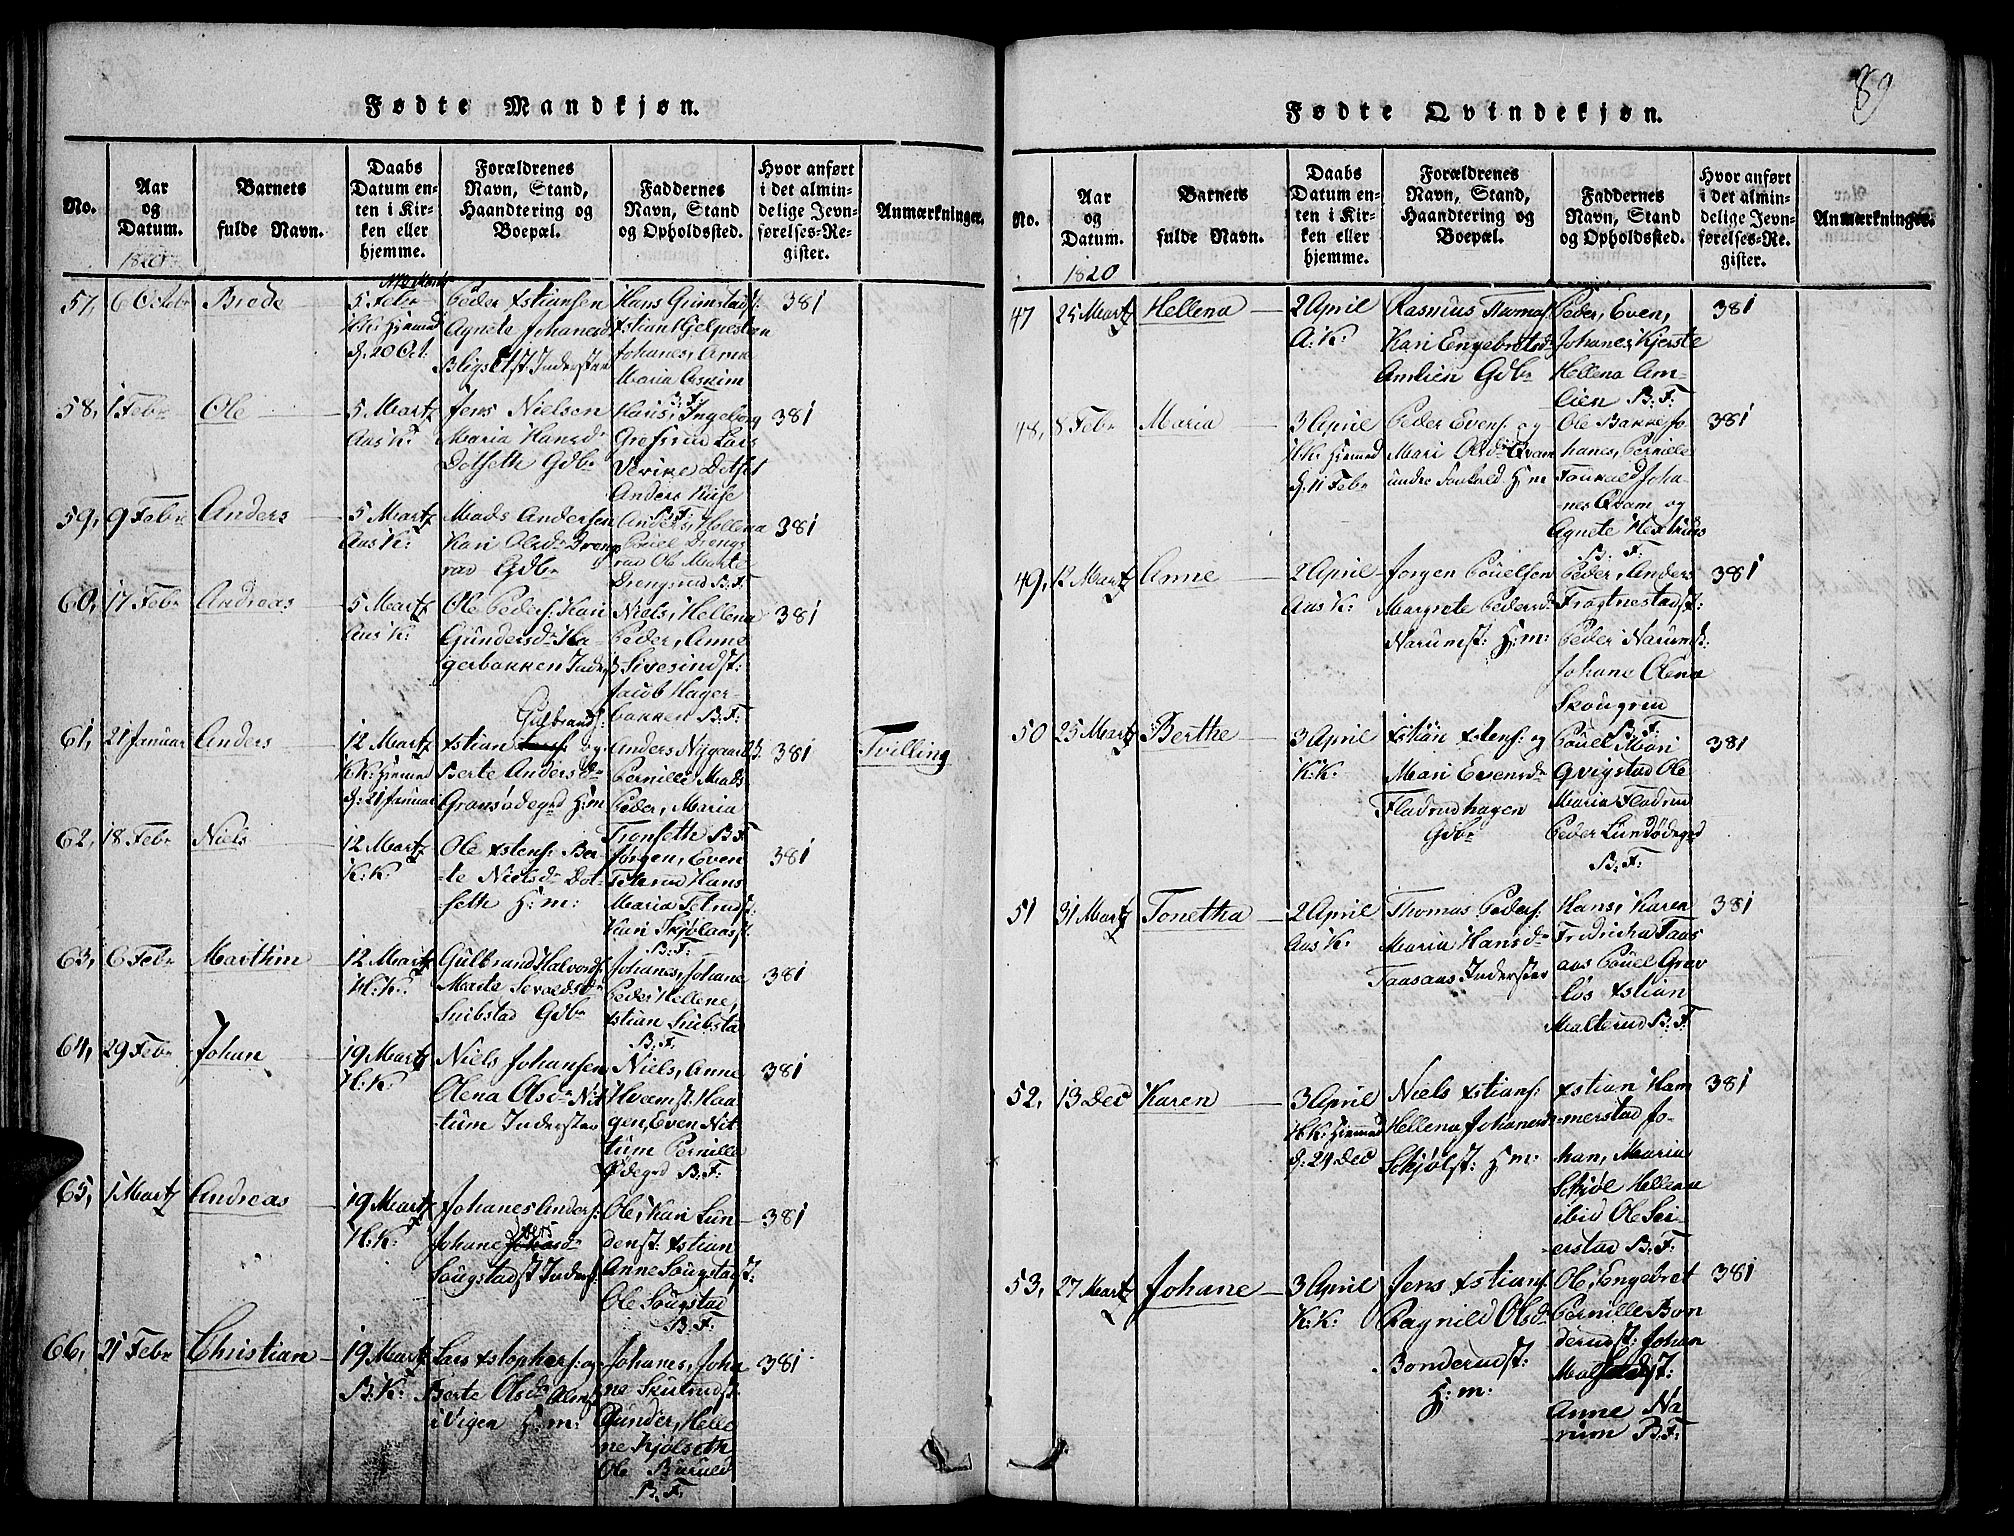 89
Fødte Mandkjøn.
No.
Aar
og
Datum.
Barnets
fulde Navn.
Daabs
Datum en-
ten i Kir-
ken eller
hjemme.
Forældrenes
Navn, Stand,
Haandtering og
Boepæl.
Faddernes
Navn, Stand
og Opholdssted.
Hvor anført
i det almin-
delige Jevn-
førelses-Re-
gister.
Anmærkninger.
57, 6 Octobr
Brede
5 Febr
H:K: Hiemmed
d, 20 Oct.
Peder Xstiansen
Agnete Johanesd
Inderster
Hans Grimstadst:
Xstian Hjelpesteen
Johanes, Anne
Maria Askim
B. F.
381
58, 1 Febr
Ole
5 Martz
Aas K:
Jens Nielsen
Maria Hansdr
Detseth Gdbr
Hans, Ingeborg
Lars
Anders
B. F.
381
59, 9 Febr
Anders
5 Martz
Aas K:
Mads Andersen
Kari Olsdr Dreng
rud Gdbr
Anders, Hellena
Pouel Drengs
rud Ole Marte
Drengrud B: F:
381
60, 17 Febr
Andreas
5 Martz
Aas K:
Ole Peders: Kari
Gundersdr Ha-
gerbakken Inders
Niels, Hellena
Peder, Anne
Sivesindst:
Jacob Hager-
bakken B: F:
381
61, 21 Januar
Anders
12 Martz
K:K: Hiemmed
d: 21 Januar
Gulbrands:
Xstian og
Berte Andersdr
H:m
Anders Nygaard
Pernille Mads
Peder, Maria
Tronseth B: F:
381
Tvilling
62, 18 Febr
Niels
12 Martz
K: K:
Ole Xstens: Ber-
te Nielsdr Dot-
seth H:m:
Jørgen, Even
Hans
Maria
Kari
B: F:
381
63, 6 Febr
Marthin
12 Martz
H: K:
Gulbrand Halvords:
Marte Sevaldsdr
Snibstad Gdbr
Johanes, Johane
Peder Hellene,
Xstian Snibstad
B: F:
381
64, 29 Febr
Johan
19 Martz
H: K:
Niels Johansen
Olena Olsdr Nit-
tum Inderster
Niels, Anne
Hvemst: Haa-
gen, Even Nit-
tum Pernille
Ødegrd B: F:
381
65, 1 Martz
Andreas
19 Martz
H: K:
Johanes Anders:
Johane
Sougstadst Inders:
Ole, Kari Lun-
denst: Xstian
Anne Sougstadst:
Ole Sougstad
B: F:
381
66, 21 Febr
Christian
19 Martz
B: K:
Lars Xstophers: og
Berte Olsdr
i Vigen H:m:
Johanes, Joha
ne Skulrudst:
Gunder, Helle
ne Kjølseth
Ole
B: F:
381
Fødte Qvindekjøn.
No.
Aar
og
Datum.
1820
Barnets
fulde Navn.
Daabs
Datum en-
ten i Kir-
ken eller
hjemme.
Forældrenes
Navn, Stand,
Haandtering og
Boepæl.
Faddernes
Navn, Stand
og Opholdssted.
Hvor anført
i det almin-
delige Jevn-
førelses-Re-
gister.
Anmærkninger.
47 25 Martz
Hellena
2 April
A: K:
Rasmus Thomas
Kari Engebretsdr
Amlien Gdbr
Peder, Even,
Johanes, Kjerste
Hellena Am-
lien B: F:
381
48, 8 Febr
Maria
3 April
H:K: Hiemmed
d, 11 Febr
Peder Evens: og
Mari Olsdr Qvam
undre H:m
Ole Bakke Jo
hanes, Pernille
Joha-
nes Qvam og
Agnete
B: F:
381
49, 12 Martz
Anne
2 April
Aas K:
Jørgen Pouelsen
Margrete Pedersdr
Narumst: H:m:
Peder, Anders
Frognestadst:
Peder Narumst:
Johane Olena
Skougrud
B: F:
381
50 25 Martz
Berthe
3 April
K: K:
Xstian Xstens: og
Mari Evensdr
Fladrudhagen
Gdbr
Pouel Mari
Qvigstad Ole
Maria Fladrud
Peder Lundødegrd
B: F:
381
51 31 Martz
Tonetha
2 April
Aas K:
Thomas Peders:
Maria Hansdr
Taasaas Inderster
Hans, Karen
Fredricha Taas
aas Pouel Grav-
løs Xstian
Malterud B: F:
381
52, 13 Dec
Karen
3 April
H:K: Hiemmed
d: 24 Dec
Niels Xstians:
Hellena Johanesdr
Skjølst: H:m:
Xstian Ham
merstad Jo-
han, Maria
Skjøl Hellena
ibid Ole Sei-
erstad B: F:
381
53, 27 Martz
Johane
3 April
K: K:
Jens Xstians:
Ragnild Olsdr
Bonderudst:
H:m:
Ole, Engebret
Pernille Bon
derudst: Johan
Anne Na
rum B: F:
381